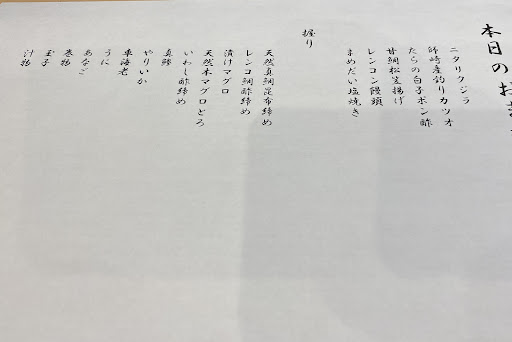 本日のお
ニタリクジラ
師崎産釣りカツオ
たらの白子ポン酢
甘鯛松笠揚げ
レンコン饅頭
まめだい塩焼き
握り
天然真鯛昆布締め
レンコ鯛酢締め
漬けマグロ
天然本マグロとろ
いわし酢締め
真鯵
やりいか
車海老
うに
あなご
巻物
玉子
汁物